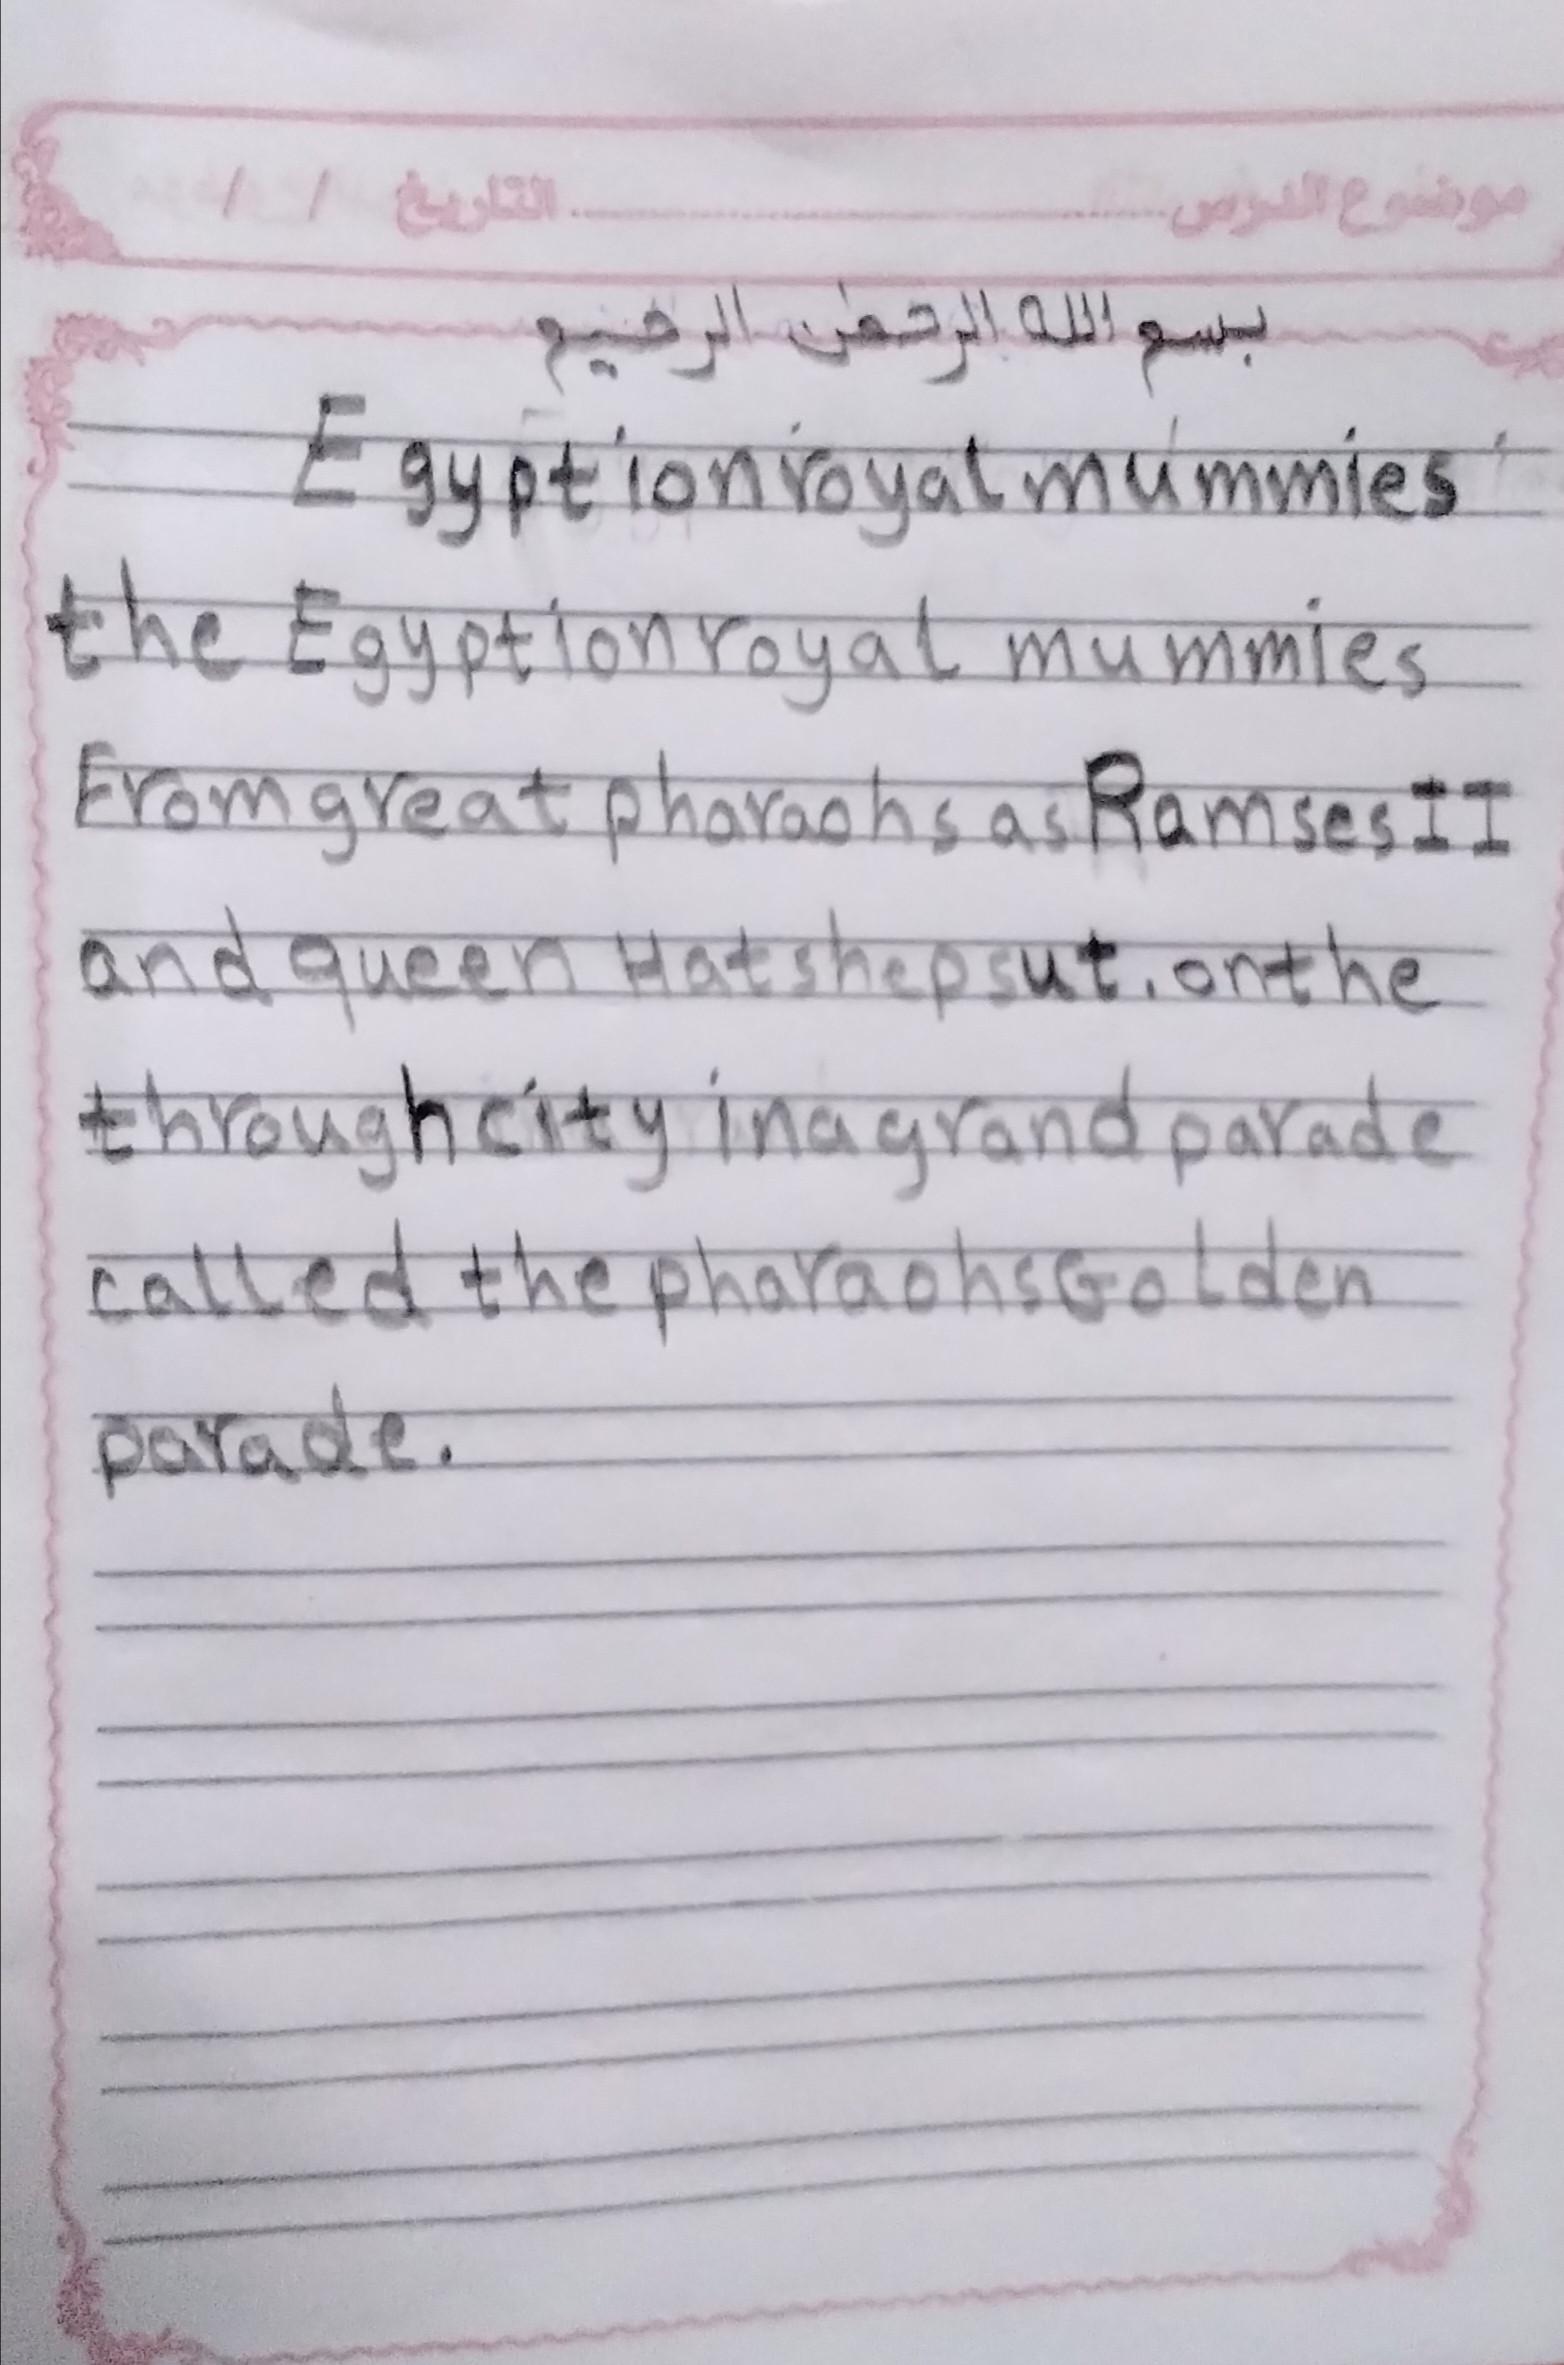 موضوع الدرس ........................ التاريخ / /
بسم الله الرحمن الرحيم
Egyption royal mummies
the Egyption royal mummies
From great pharaohs as Ramses II
and queen Hatshepsut. on the
through city in a grand parade
called the pharaohs Golden
parade.